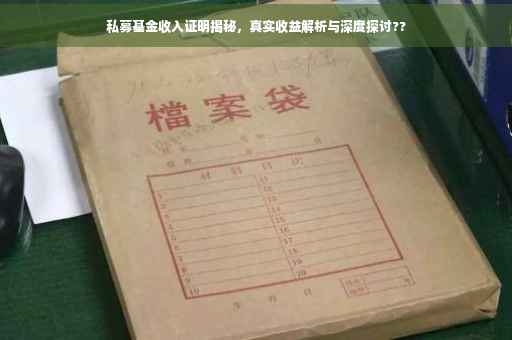 私募基金收入证明揭秘，真实收益解析与深度探讨??
檔案袋
材料目次
1 11
2 12
3 13
4 14
5 15
6 16
7 17
8 18
9 19
10 20
年 月 日